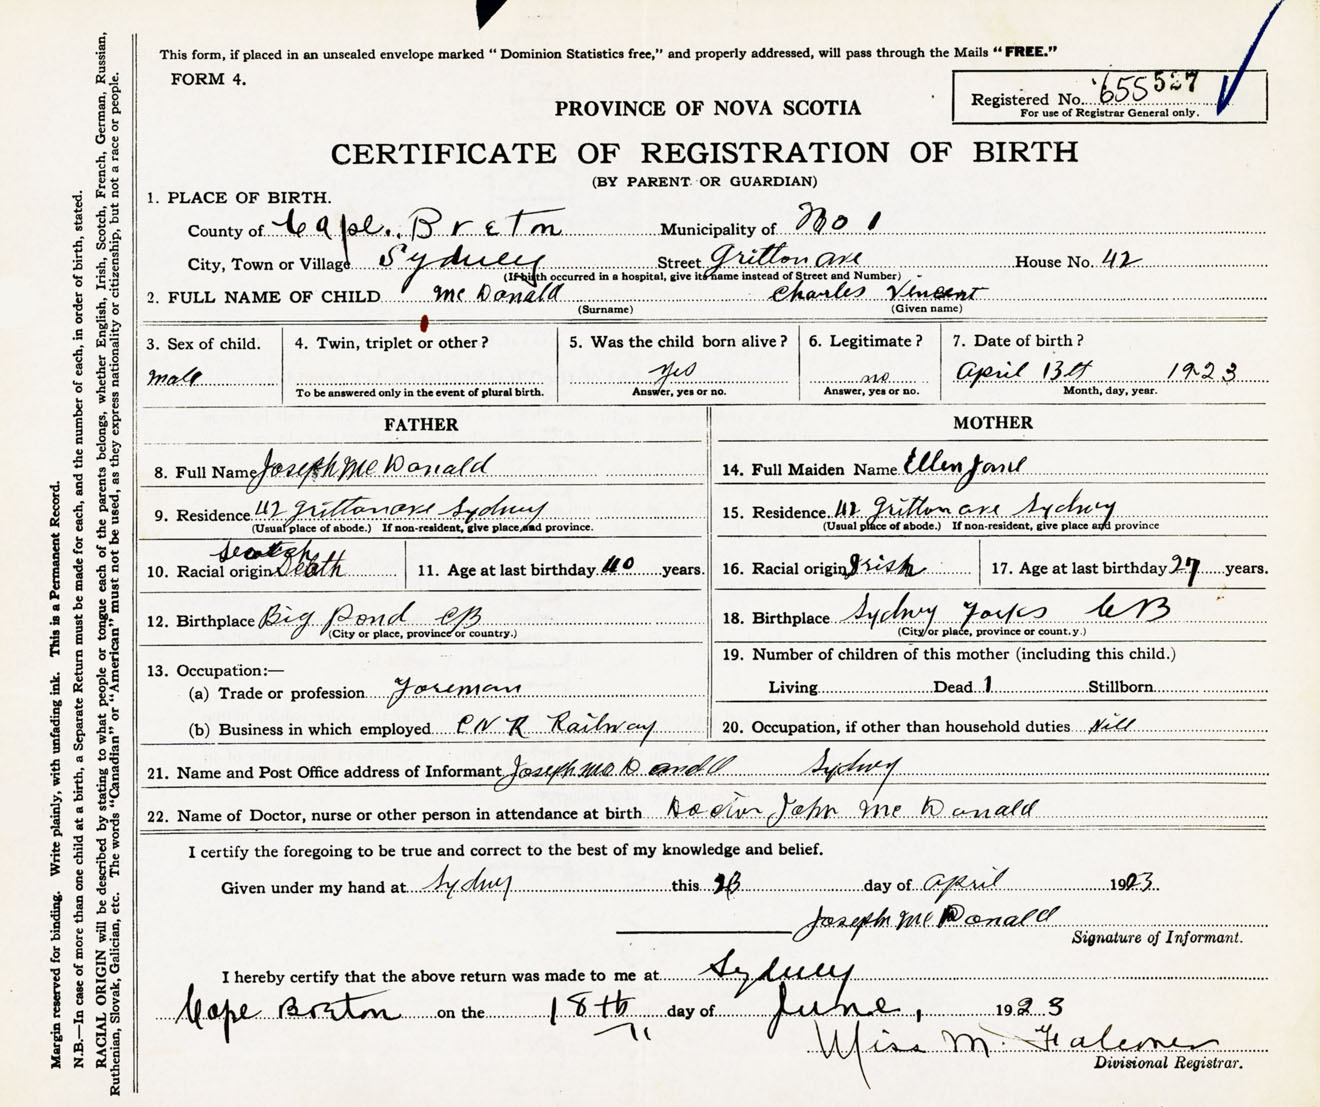 This form, if placed in an unsealed envelope marked "Dominion Statistics free," and properly addressed, will pass through the Mails "FREE."
FORM 4.
Registered No. 655 527
For use of Registrar General only.
PROVINCE OF NOVA SCOTIA
CERTIFICATE OF REGISTRATION OF BIRTH
(BY PARENT OR GUARDIAN)
1. PLACE OF BIRTH.
County of Cape Breton Municipality of No 1
City, Town or Village Sydney Street Gritton ave House No. 42
(If birth occurred in a hospital, give its name instead of Street and Number)
2. FULL NAME OF CHILD Mc Donald Charles Vencent
(Surname) (Given name)
3. Sex of child. 4. Twin, triplet or other? 5. Was the child born alive? 6. Legitimate? 7. Date of birth?
male yes no April 13th 1923
To be answered only in the event of plural birth. Answer, yes or no. Answer, yes or no. Month, day, year.
FATHER MOTHER
8. Full Name Joseph Mc Donald 14. Full Maiden Name Ellen Jane
9. Residence 42 Gritton ave Sydney 15. Residence 42 Gritton ave Sydney
(Usual place of abode.) If non-resident, give place, and province. (Usual place of abode.) If non-resident, give place and province
10. Racial origin Scotch 11. Age at last birthday 40 years. 16. Racial origin Irish 17. Age at last birthday 27 years.
12. Birthplace Big Pond CB 18. Birthplace Sydney Forks CB
(City or place, province or country.) (City or place, province or count.y.)
13. Occupation:— 19. Number of children of this mother (including this child.)
(a) Trade or profession Foreman Living Dead 1 Stillborn
(b) Business in which employed CNR Railway 20. Occupation, if other than household duties Nill
21. Name and Post Office address of Informant Joseph Mc Donald Sydney
22. Name of Doctor, nurse or other person in attendance at birth Doctor John Mc Donald
I certify the foregoing to be true and correct to the best of my knowledge and belief.
Given under my hand at Sydney this day of April 1923.
Joseph Mc Donald
Signature of Informant.
I hereby certify that the above return was made to me at Sydney
Cape Breton on the 18th day of June, 1923
Miss M. Falconer
Divisional Registrar.
Margin reserved for binding. Write plainly, with unfading ink. This is a Permanent Record.
N.B.—In case of more than one child at a birth, a Separate Return must be made for each, and the number of each, in order of birth, stated.
RACIAL ORIGIN will be described by stating to what people or tongue each of the parents belongs, whether English, Irish, Scotch, French, German, Russian,
Ruthenian, Slovak, Galician, etc. The words "Canadian" or "American" must not be used, as they express nationality or citizenship, but not a race or people.